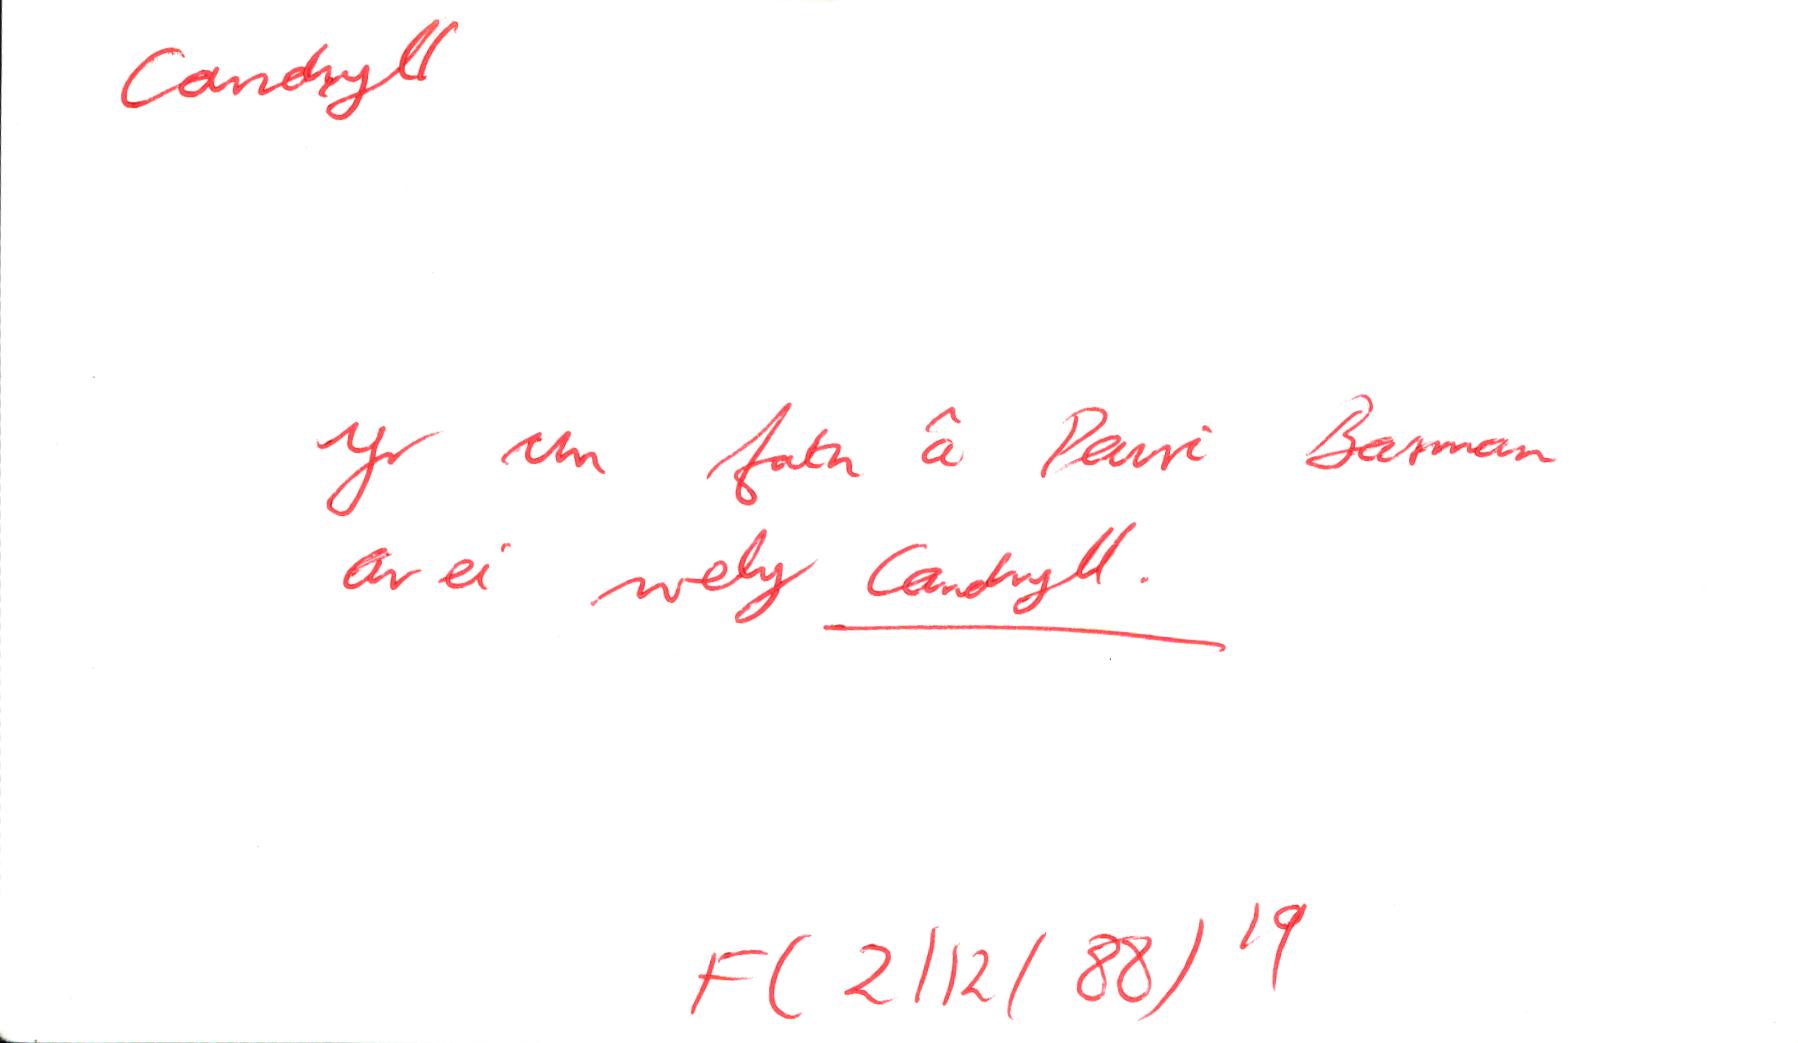 Candryll
Yr un fath â Dewi Basman
ar ei wely Candryll.
F(2/12/88) 19